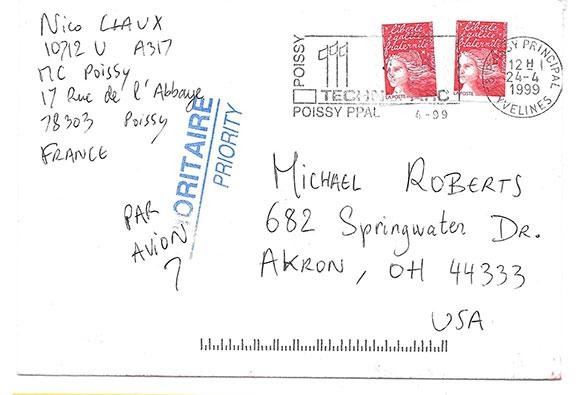 Nico CLAUX
10712 U A317
MC Poissy
17 Rue de l'Abbaye
78303 Poissy
FRANCE
PAR
AVION
ORITAIRE
PRIORITY
POISSY
TECHN
POISSY PPAL
4-99
Liberté
égalité
fraternité
LA POSTE
Liberté
égalité
fraternité
LA POSTE
SY PRINCIPAL
12 H
24-4
1999
YVELINES
MICHAEL ROBERTS
682 Springwater DR.
AKRON, OH 44333
USA